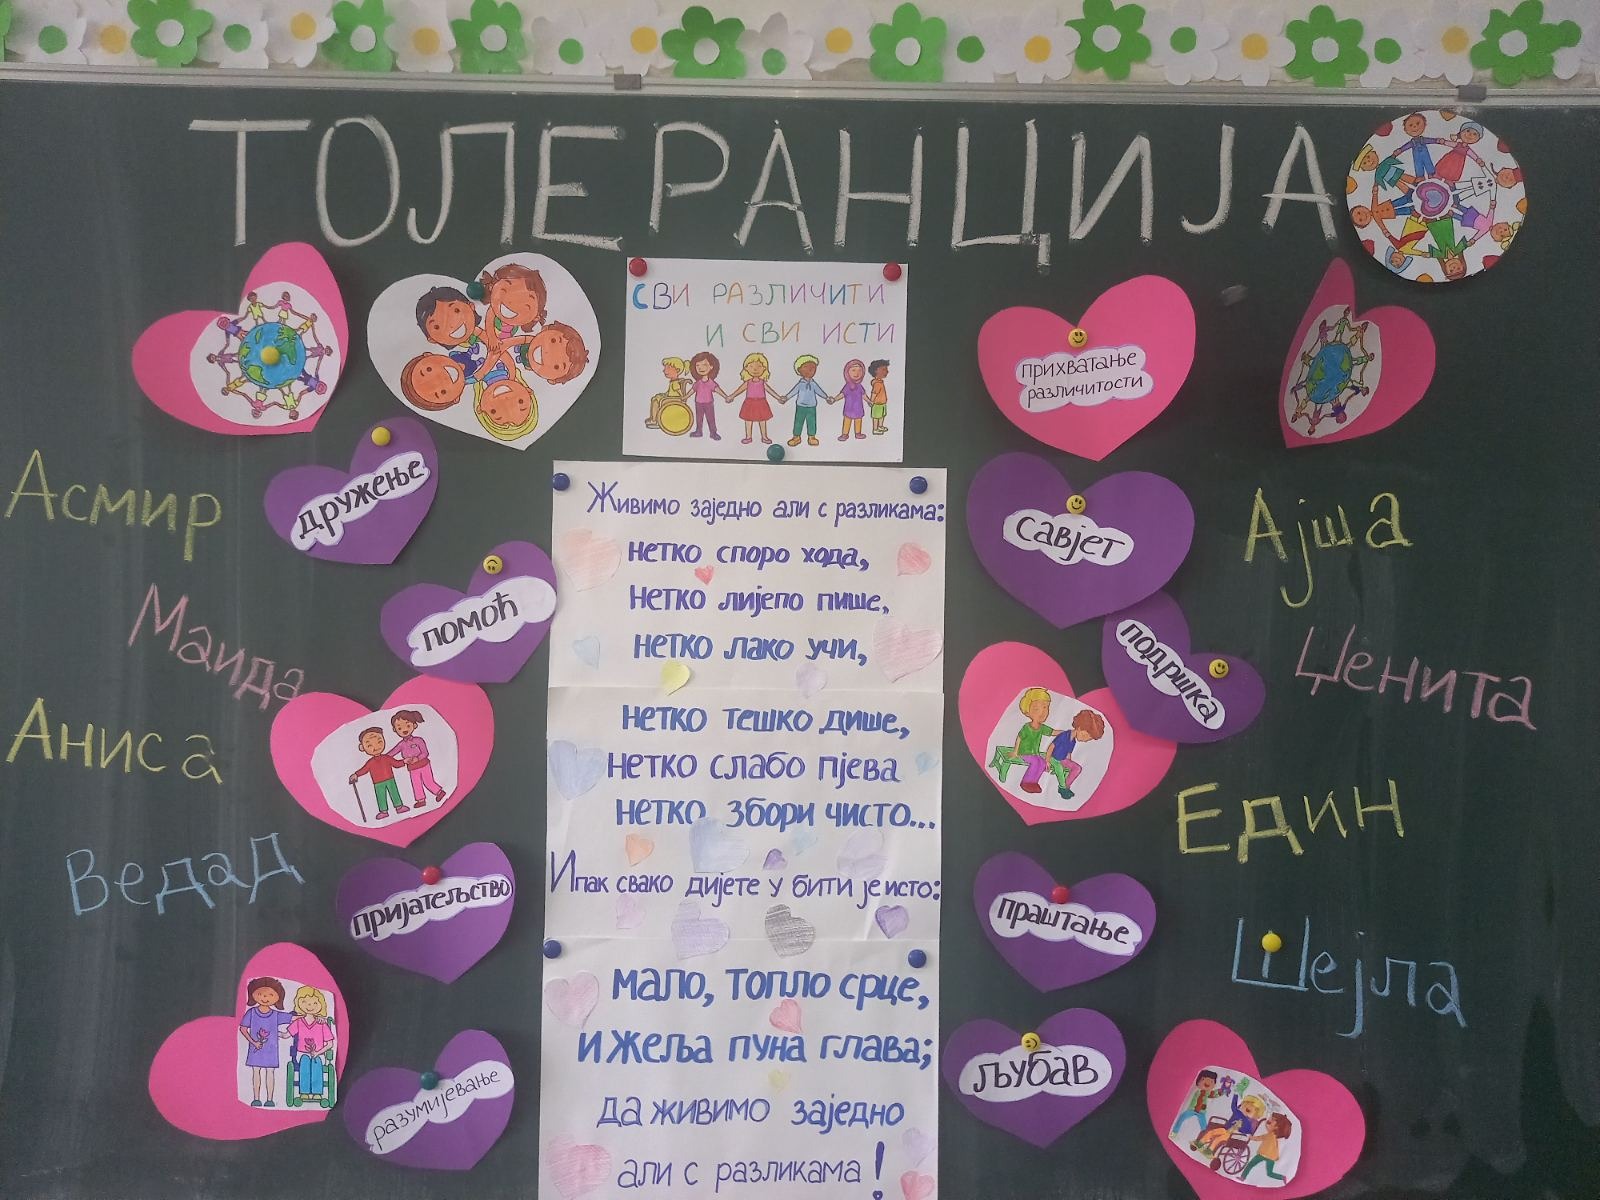 ТОЛЕРАНЦИЈА
СВИ РАЗЛИЧИТИ
И СВИ ИСТИ
прихватање
различитости
дружење
помоћ
пријатељство
разумијевање
савјет
подршка
праштање
љубав
Асмир
Маида
Аниса
Ведад
Ајша
Џенита
Един
Шејла
Живимо заједно али с разликама:
нетко споро хода,
нетко лијепо пише,
нетко лако учи,
нетко тешко дише,
нетко слабо пјева
нетко збори чисто...
Ипак свако дијете у бити је исто:
мало, топло срце,
и жеља пуна глава;
да живимо заједно
али с разликама!